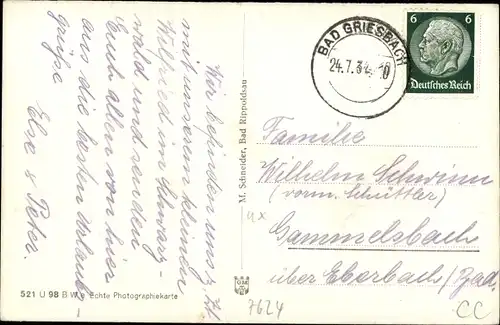 Wir befinden uns z. Zt.
mit unserem kleinen
Wilfried im Schwarz-
wald und senden
Euch allen von hier
aus die besten Urlaubs-
grüße
Else & Peter.
M. Schneider, Bad Rippoldsau
521 U 98 B W Echte Photographiekarte
BAD GRIESBACH
24.7.34
6 6
Deutsches Reich
Familie
Wilhelm Schwinn
(vorm. Schüttler)
Gammelsbach
über Eberbach/Bad.
7624
CC